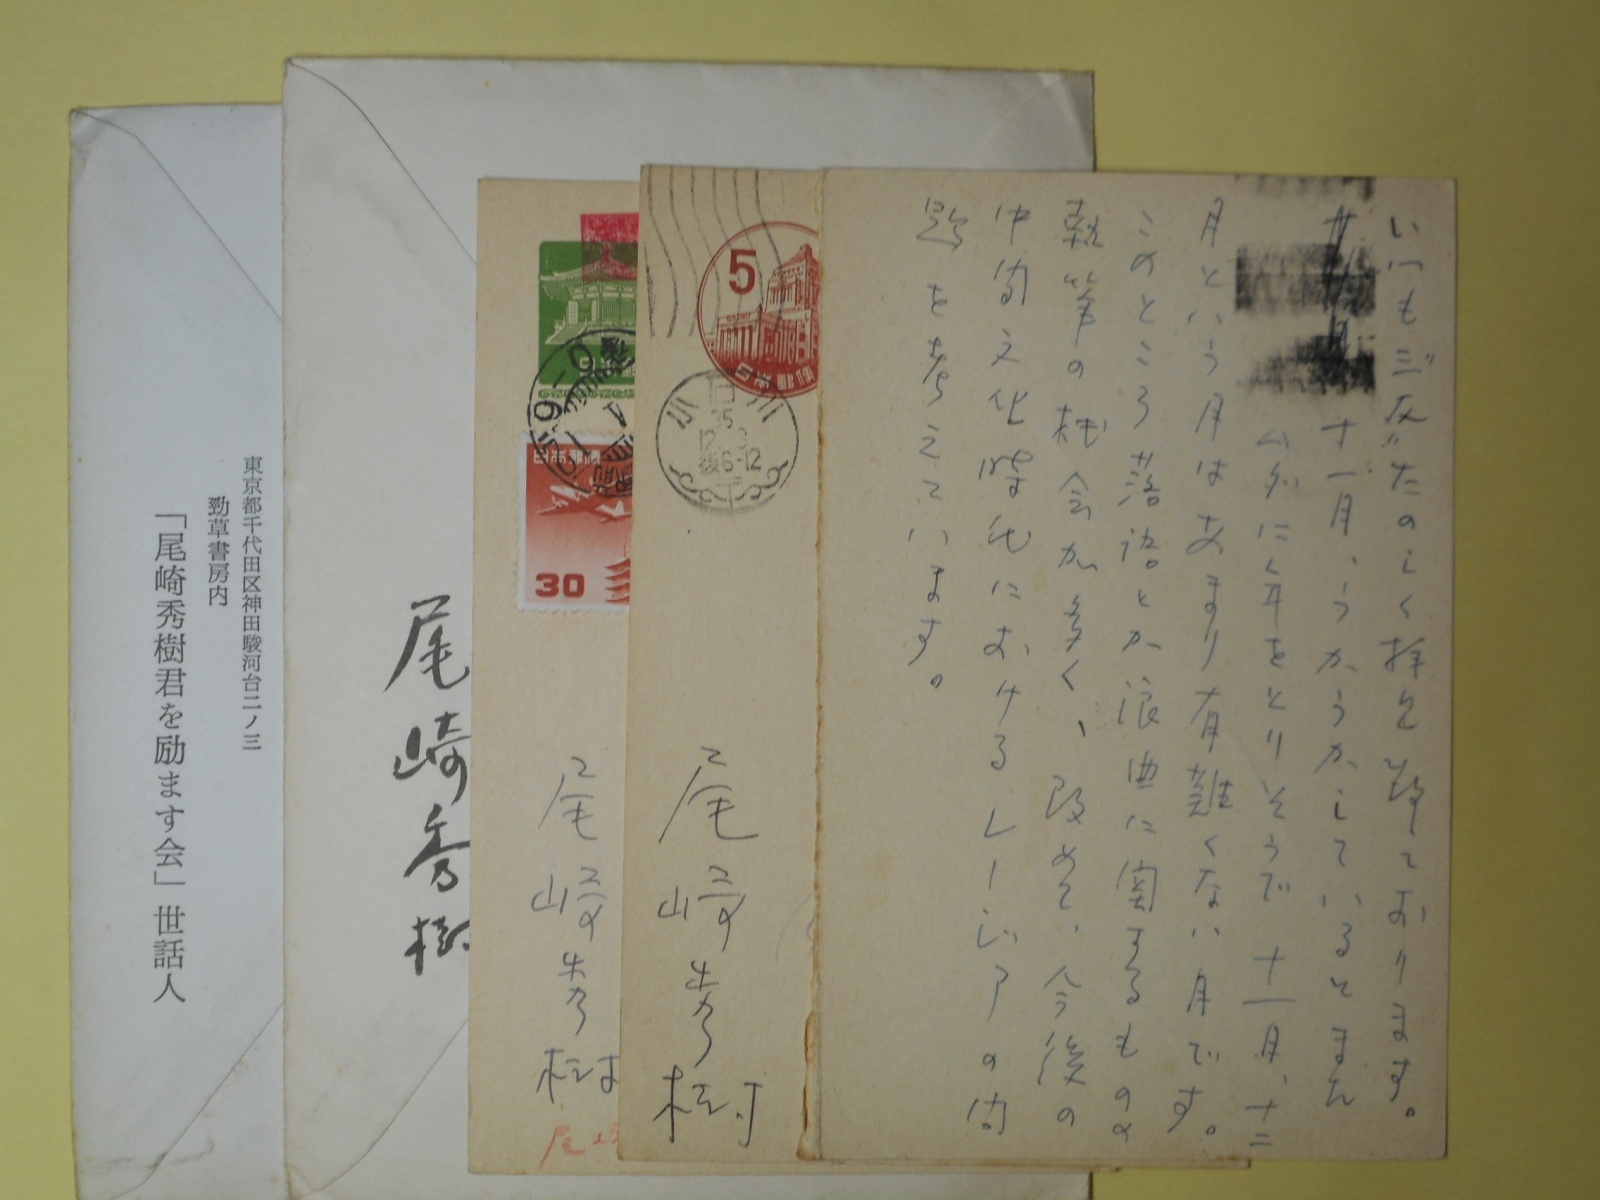 いつも〝三友〟たのしく拝見致しております。
十一月、うかうかしているとまた
に年をとりそうで 十一月、十二
月という月はあまり有難くない月です。
このところ落語とか浪曲に関するものの
執筆の機会が多く、改めて、今後の
中間文化時代におけるレージアの問
題を考えています。
5
日本郵便
小石川
35
後6-12
尾崎秀樹
日本郵便
30
尾崎秀樹
尾崎秀樹
東京都千代田区神田駿河台二ノ三
勁草書房内
「尾崎秀樹君を励ます会」世話人